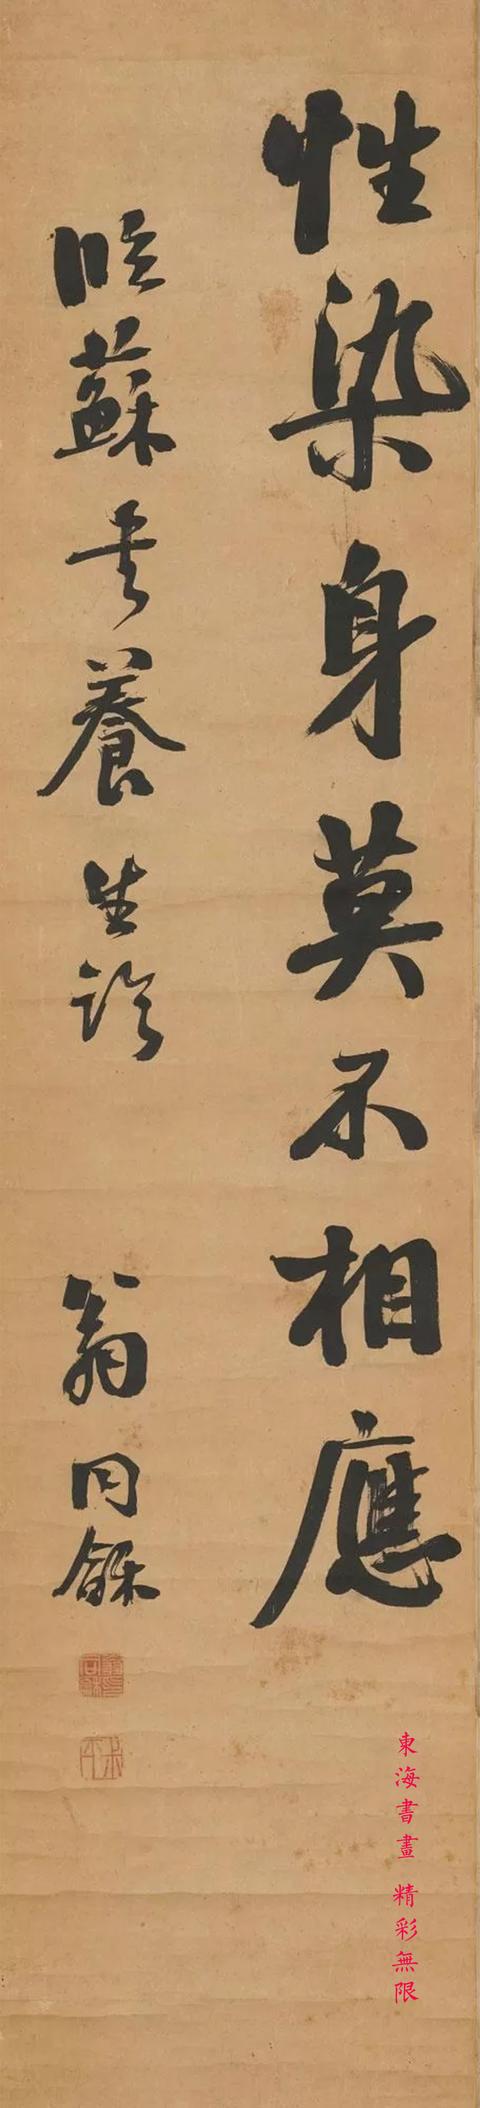 性染身莫不相應
臨蘇書養生論
翁同龢
東海書畫 精彩無限